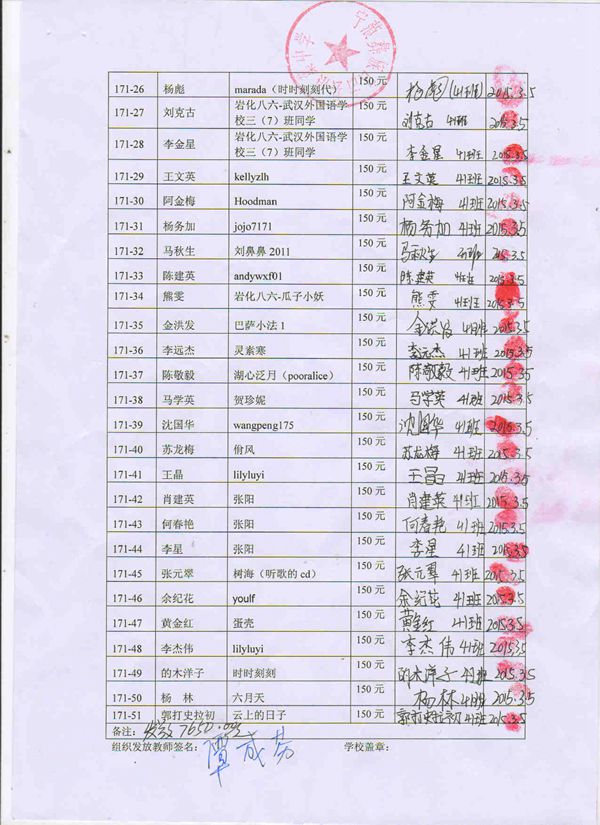 171-26 杨彪 marada（时时刻刻代） 150 元 杨彪 (41班) 2015.3.5
171-27 刘克古 岩化八六-武汉外国语学 150 元 刘克古 41班 2015.3.5
校三（7）班同学
171-28 李金星 岩化八六-武汉外国语学 150 元 李金星 41班 2015.3.5
校三（7）班同学
171-29 王文英 kellyzlh 150 元 王文英 41班 2015.3.5
171-30 阿金梅 Hoodman 150 元 阿金梅 41班 2015.3.5
171-31 杨务加 jojo7171 150 元 杨务加 41班 2015.3.5
171-32 马秋生 刘鼻鼻 2011 150 元 马秋生 41班 2015.3.5
171-33 陈建英 andywxf01 150 元 陈建英 41班 2015.3.5
171-34 熊雯 岩化八六-瓜子小妖 150 元 熊雯 41班 2015.3.5
171-35 金洪发 巴萨小法 1 150 元 金洪发 41班 2015.3.5
171-36 李远杰 灵素寒 150 元 李远杰 41班 2015.3.5
171-37 陈敬毅 湖心泛月（pooralice） 150 元 陈敬毅 41班 2015.3.5
171-38 马学英 贺珍妮 150 元 马学英 41班 2015.3.5
171-39 沈国华 wangpeng175 150 元 沈国华 41班 2015.3.5
171-40 苏龙梅 偷风 150 元 苏龙梅 41班 2015.3.5
171-41 王晶 lilyluyi 150 元 王晶 41班 2015.3.5
171-42 肖建英 张阳 150 元 肖建英 41班 2015.3.5
171-43 何春艳 张阳 150 元 何春艳 41班 2015.3.5
171-44 李星 张阳 150 元 李星 41班 2015.3.5
171-45 张元翠 树海（听歌的 cd） 150 元 张元翠 41班 2015.3.5
171-46 余纪花 youlf 150 元 余纪花 41班 2015.3.5
171-47 黄金红 蛋壳 150 元 黄金红 41班 2015.3.5
171-48 李杰伟 lilyluyi 150 元 李杰伟 41班 2015.3.5
171-49 的木洋子 时时刻刻 150 元 的木洋子 41班 2015.3.5
171-50 杨 林 六月天 150 元 杨林 41班 2015.3.5
171-51 郭打史拉初 云上的日子 150 元 郭打史拉初 41班 2015.3.5
备注：发放7650.00元
组织发放教师签名： 学校盖章：